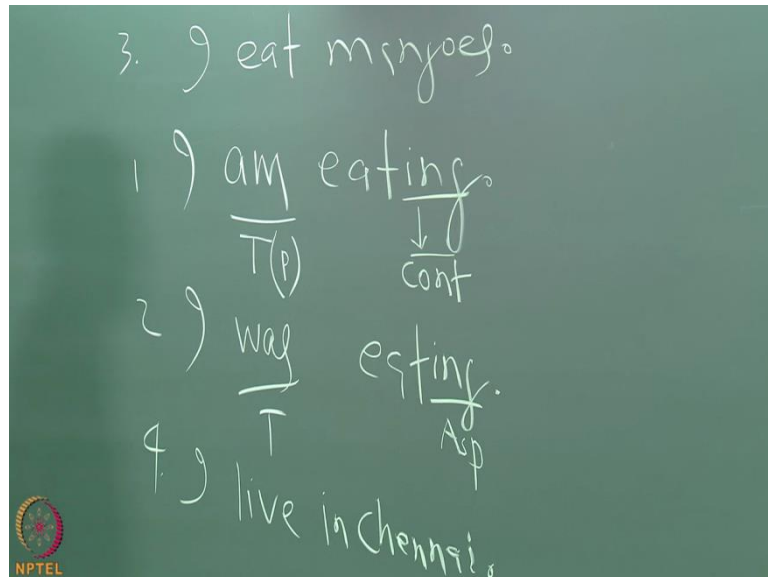 3. I eat mangoes.
1 I am eating.
T(P) Cont
2 I was eating.
T Asp
4. I live in Chennai.
NPTEL